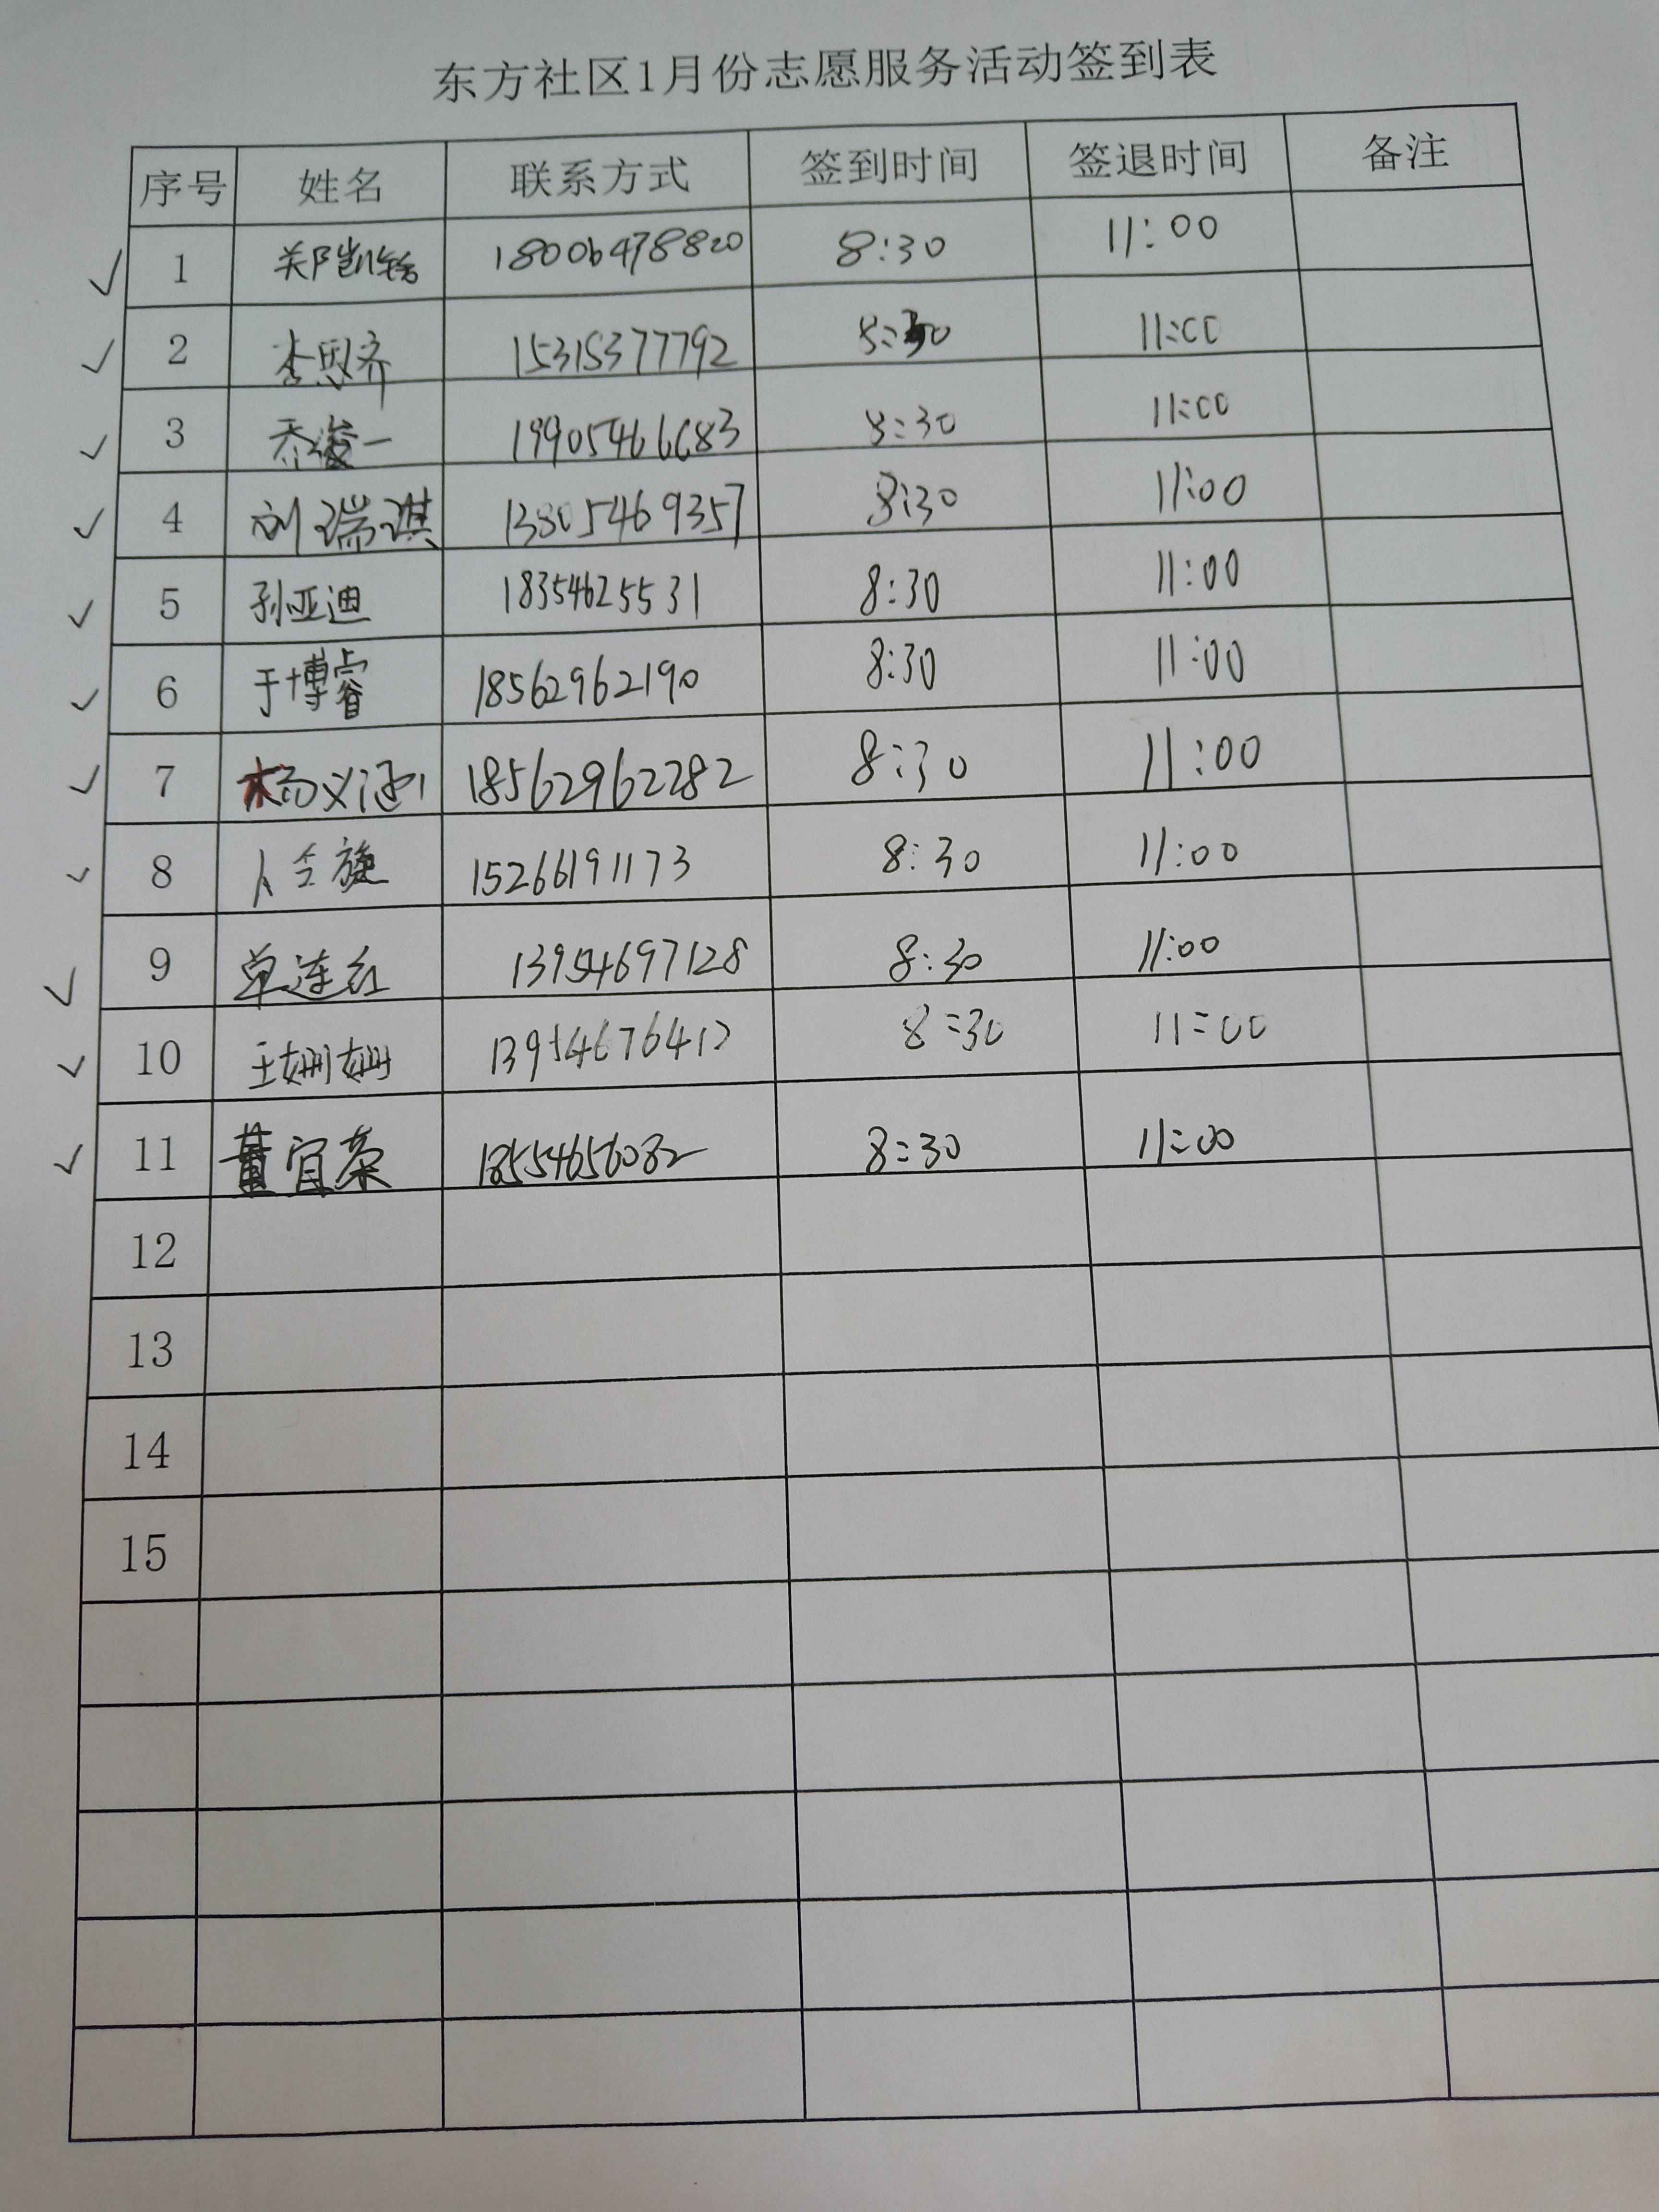 东方社区1月份志愿服务活动签到表
序号 姓名 联系方式 签到时间 签退时间 备注
1 郑凯铭 18006478820 8:30 11:00
2 李恩齐 15315377792 8:30 11:00
3 乔俊一 19905466683 8:30 11:00
4 刘瑞琪 13805469357 8:30 11:00
5 孙亚迪 18354625531 8:30 11:00
6 于博睿 18562962190 8:30 11:00
7 杨义涵 18562962282 8:30 11:00
8 15266191173 8:30 11:00
9 单连红 13954697128 8:30 11:00
10 王姗姗 13954676412 8:30 11:00
11 董宜荣 18554656082 8:30 11:00
12
13
14
15